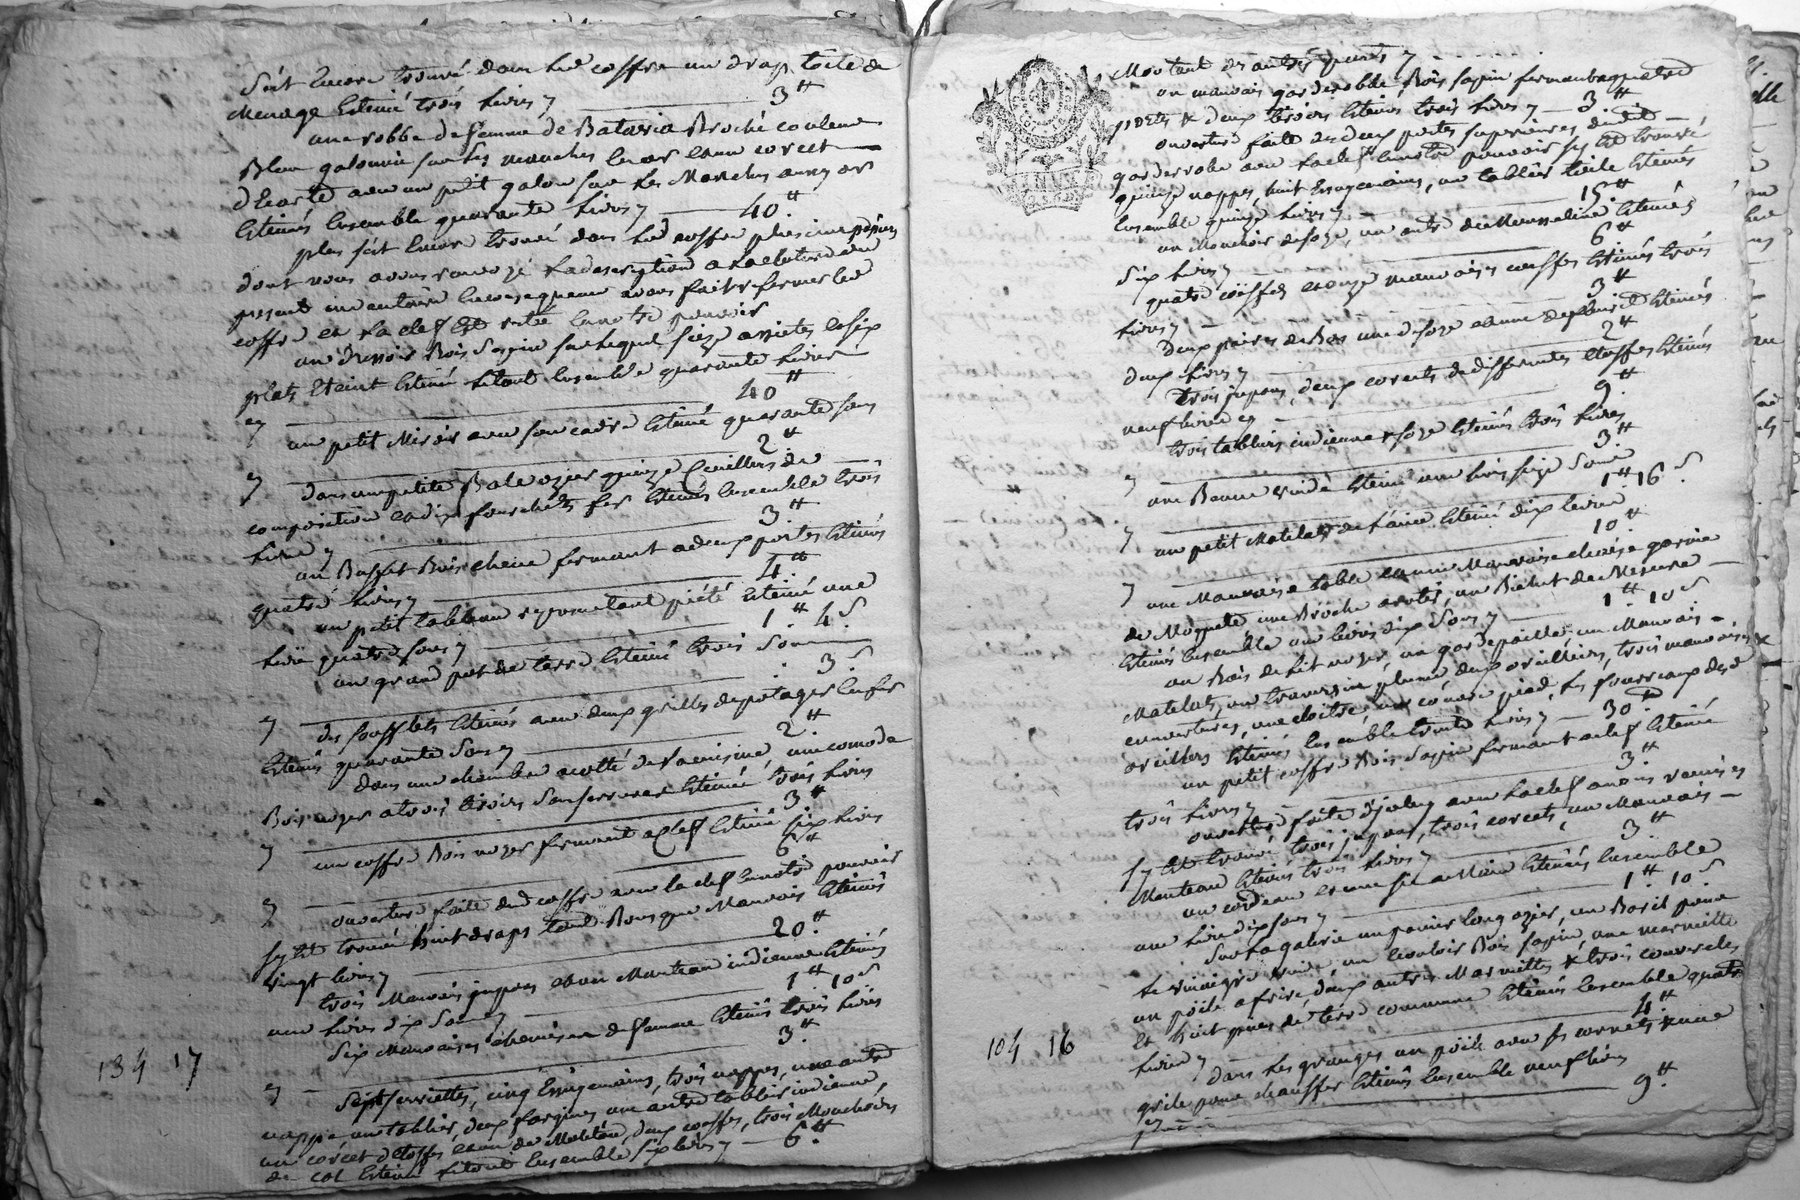 s'est encore trouvé dans led coffre un drap toile de
menage Estimé trois livres 3 ⁠tt
une robbe de femme de Batavia Broché couleur
Bleu galonnée sur les manches en or et un corcet
d'Ecarte avec un petit galon sur les Manches aussy or
Estimés Ensemble quarante livres 40 tt
plus s'est Encore trouvé dans led coffre plusieurs papiers
dont nous avons renvoyé la description a la cloture du
present inventaire en consequence avons fait refermer led
coffre et la clef Est restée en notre pouvoir
un Dressoir Bois Sapin sur lequel seize assietes et six
plats Etaint Estimé le tout Ensemble quarante livres
40 tt
un petit Miroir avec son cadre Estimé quarante sous
2 tt
dans une petite Bale ozier quinze Cueillers de
composition et dix fourchetes fer Estimés Ensemble trois
livres 3 tt
un Buffet Bois chene fermant a deux portes Estimés
quatre livres 4 tt
un petit tableau representant pieté Estimé une
livre quatre sous 1 tt 4 s
un grand pot de terre Estimé trois sous
3 s
des soufflets Estimés avec deux grilles de potager en fer
Estimés quarante sous 2 tt
dans une chambre a cotté de la cuisine une comode
Bois noyer a trois tiroirs sans serrures Estimée trois livres
3 tt
un coffre Bois noyer fermant a clef Estimé six livres
6 tt
ouverture faite dud coffre avec la clef en notre pouvoir
sy Est trouvé huit draps tant Bons que Mauvais Estimés
vingt livres 20 tt
trois Mauvais jupons et un Manteau indienne Estimés
une livre dix sous 1 tt 10 s
six Mauvaises chemises de femme Estimés trois livres
3 tt
134 17
sept serviettes, cinq Essuyemains, trois nappes, une autre
nappe, un tablier, deux un autre tablier indienne,
un corcet d'etoffe et un de Molleton, deux coeffes, trois Mouchoirs
de col Estimé le tout Ensemble six livres 6 tt
Montant des autres parts
un mauvais garderobbe Bois sapin fermant a quatre
portes & deux tiroirs Estimé trois livres 3 tt
ouverture faite des deux portes superieures dudit
garderobe avec la clef En notre pouvoir sy Est trouvé
quinze nappes, huit Essuyemains, un tablier toile Estimés
Ensemble quinze livres 15 tt
un Mouchoir de soye, un autre de Mousseline Estimés
six livres 6 tt
quatre coiffes et onze mauvaises coeffes Estimés trois
livres 3 tt
deux paires de Bas une de soye et une de Estimés
deux livres 2 tt
trois jupons, deux corcets de differentes etoffes Estimés
neuf livres 9 tt
trois tabliers indienne & soye Estimés trois livres
3 tt
une Benne vuide Estimé une livre seize sous
1 tt 16 s
un petit Matelas de laine Estimé dix livres
10 tt
une Mauvaise table et une Mauvaise chaise garnie
de Moquete une Broche a rotir, un Bichet de Mesure
Estimés Ensemble une livre dix sous 1 tt 10 s
un Bois de lit noyer, un garde paille, un Mauvais
Matelas, un traversin plume, deux oreillers, trois mauvaises
couvertures, une un couvre pied, les fourreaux des d
oreillers Estimés Ensemble trente livres 30 tt
un petit coffre Bois Sapin fermant a clef Estimé
trois livres 3 tt
ouverture faite d'jceluy avec la clef a nous remise
sy Est trouvé trois jupons, trois corcets, un Mauvais
Manteau Estimés trois livres 3 tt
un cordeau et une scie a Main Estimés Ensemble
une livre dix sous 1 tt 10 s
Sur la galerie un panier long ozier, un Baril pour
le vinaigre vuide, un Bois sapin, une marmitte
un poële a frire, deux autres Marmittes & trois couvercles
et huit pieces de terre commune Estimés Ensemble quatre
livres 4 tt
104 16
Dans les granges un poële avec ses cornets & une
grile pour chauffer Estimés Ensemble neuf livres
9 tt